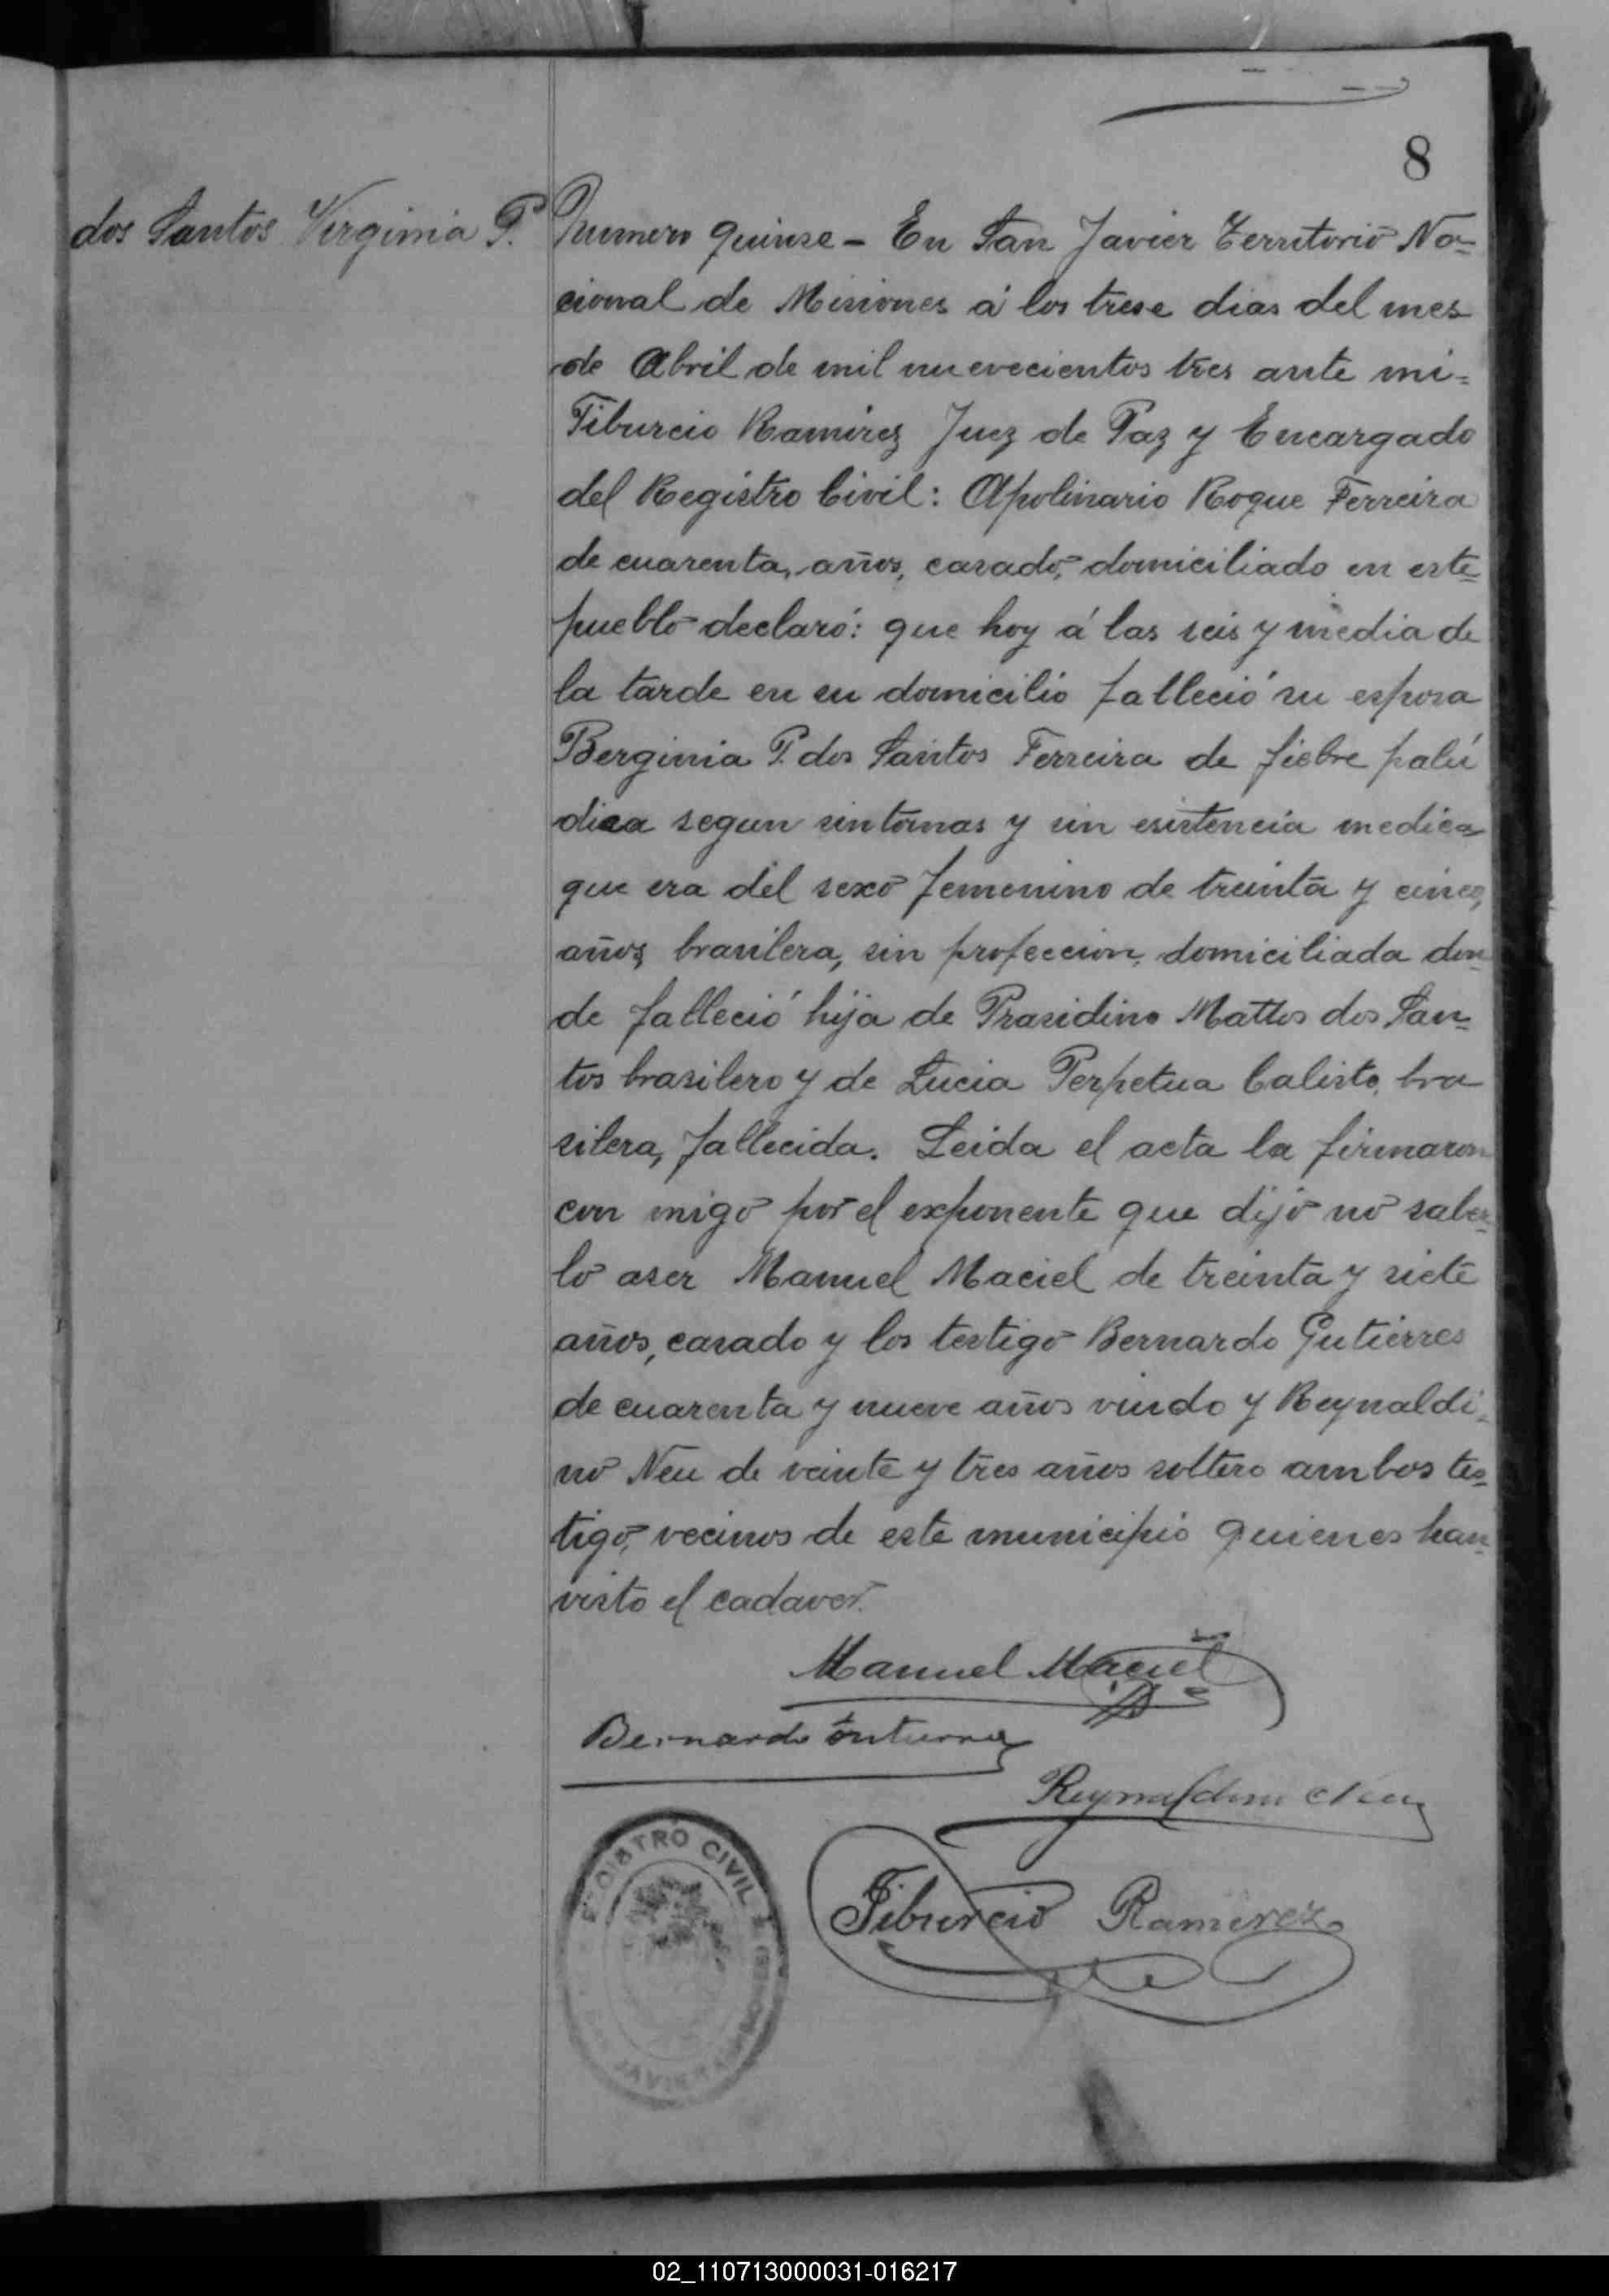 8
dos Santos Verginia P.
Numero quinse - En San Javier Territorio Na=
cional de Misiones á los trese dias del mes
de Abril de mil nuevecientos tres ante mi=
Tiburcio Ramirez Juez de Paz y Encargado
del Registro Civil: Apolinario Roque Ferreira
de cuarenta, años, casado, domiciliado en este=
pueblo declaró: que hoy á las seis y media de
la tarde en su domicilio falleció su esposa
Berginia P. dos Santos Ferreira de fiebre palú
dica segun sintomas y sin esistencia medica
que era del sexo femenino de treinta y cinco,
años, brasilera, sin profeccion, domiciliada don
de falleció hija de Prasidino Mattos dos San=
tos brasilero y de Lucia Perpetua Calisto, bra
silera, fallecida. Leida el acta la firmaron
con migo por el exponente que dijo no saber=
lo aser Manuel Maciel de treinta y siete
años, casado y los testigo Bernardo Gutierres
de cuarenta y nueve años viudo y Reynaldi=
no Neu de veinte y tres años soltero ambos tes=
tigo, vecinos de este municipio quienes han
visto el cadaver.
Manuel Maciel
Bernardo Gutierrez
Reynaldino Neu
Tiburcio Ramirez
REGISTRO CIVIL
JAVIER
02_110713000031-016217